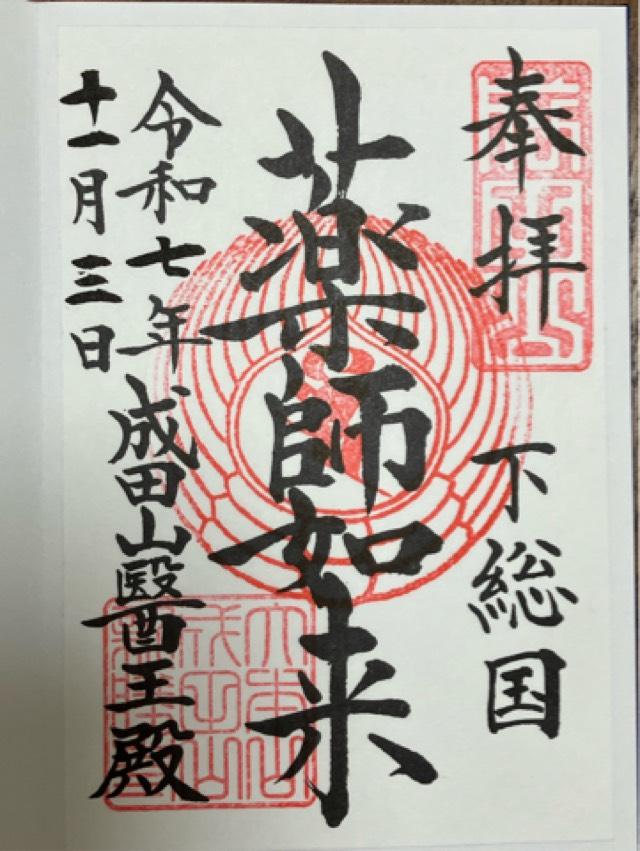 奉拝 下総国
薬師如来
令和七年 成田山醫王殿
十一月三日